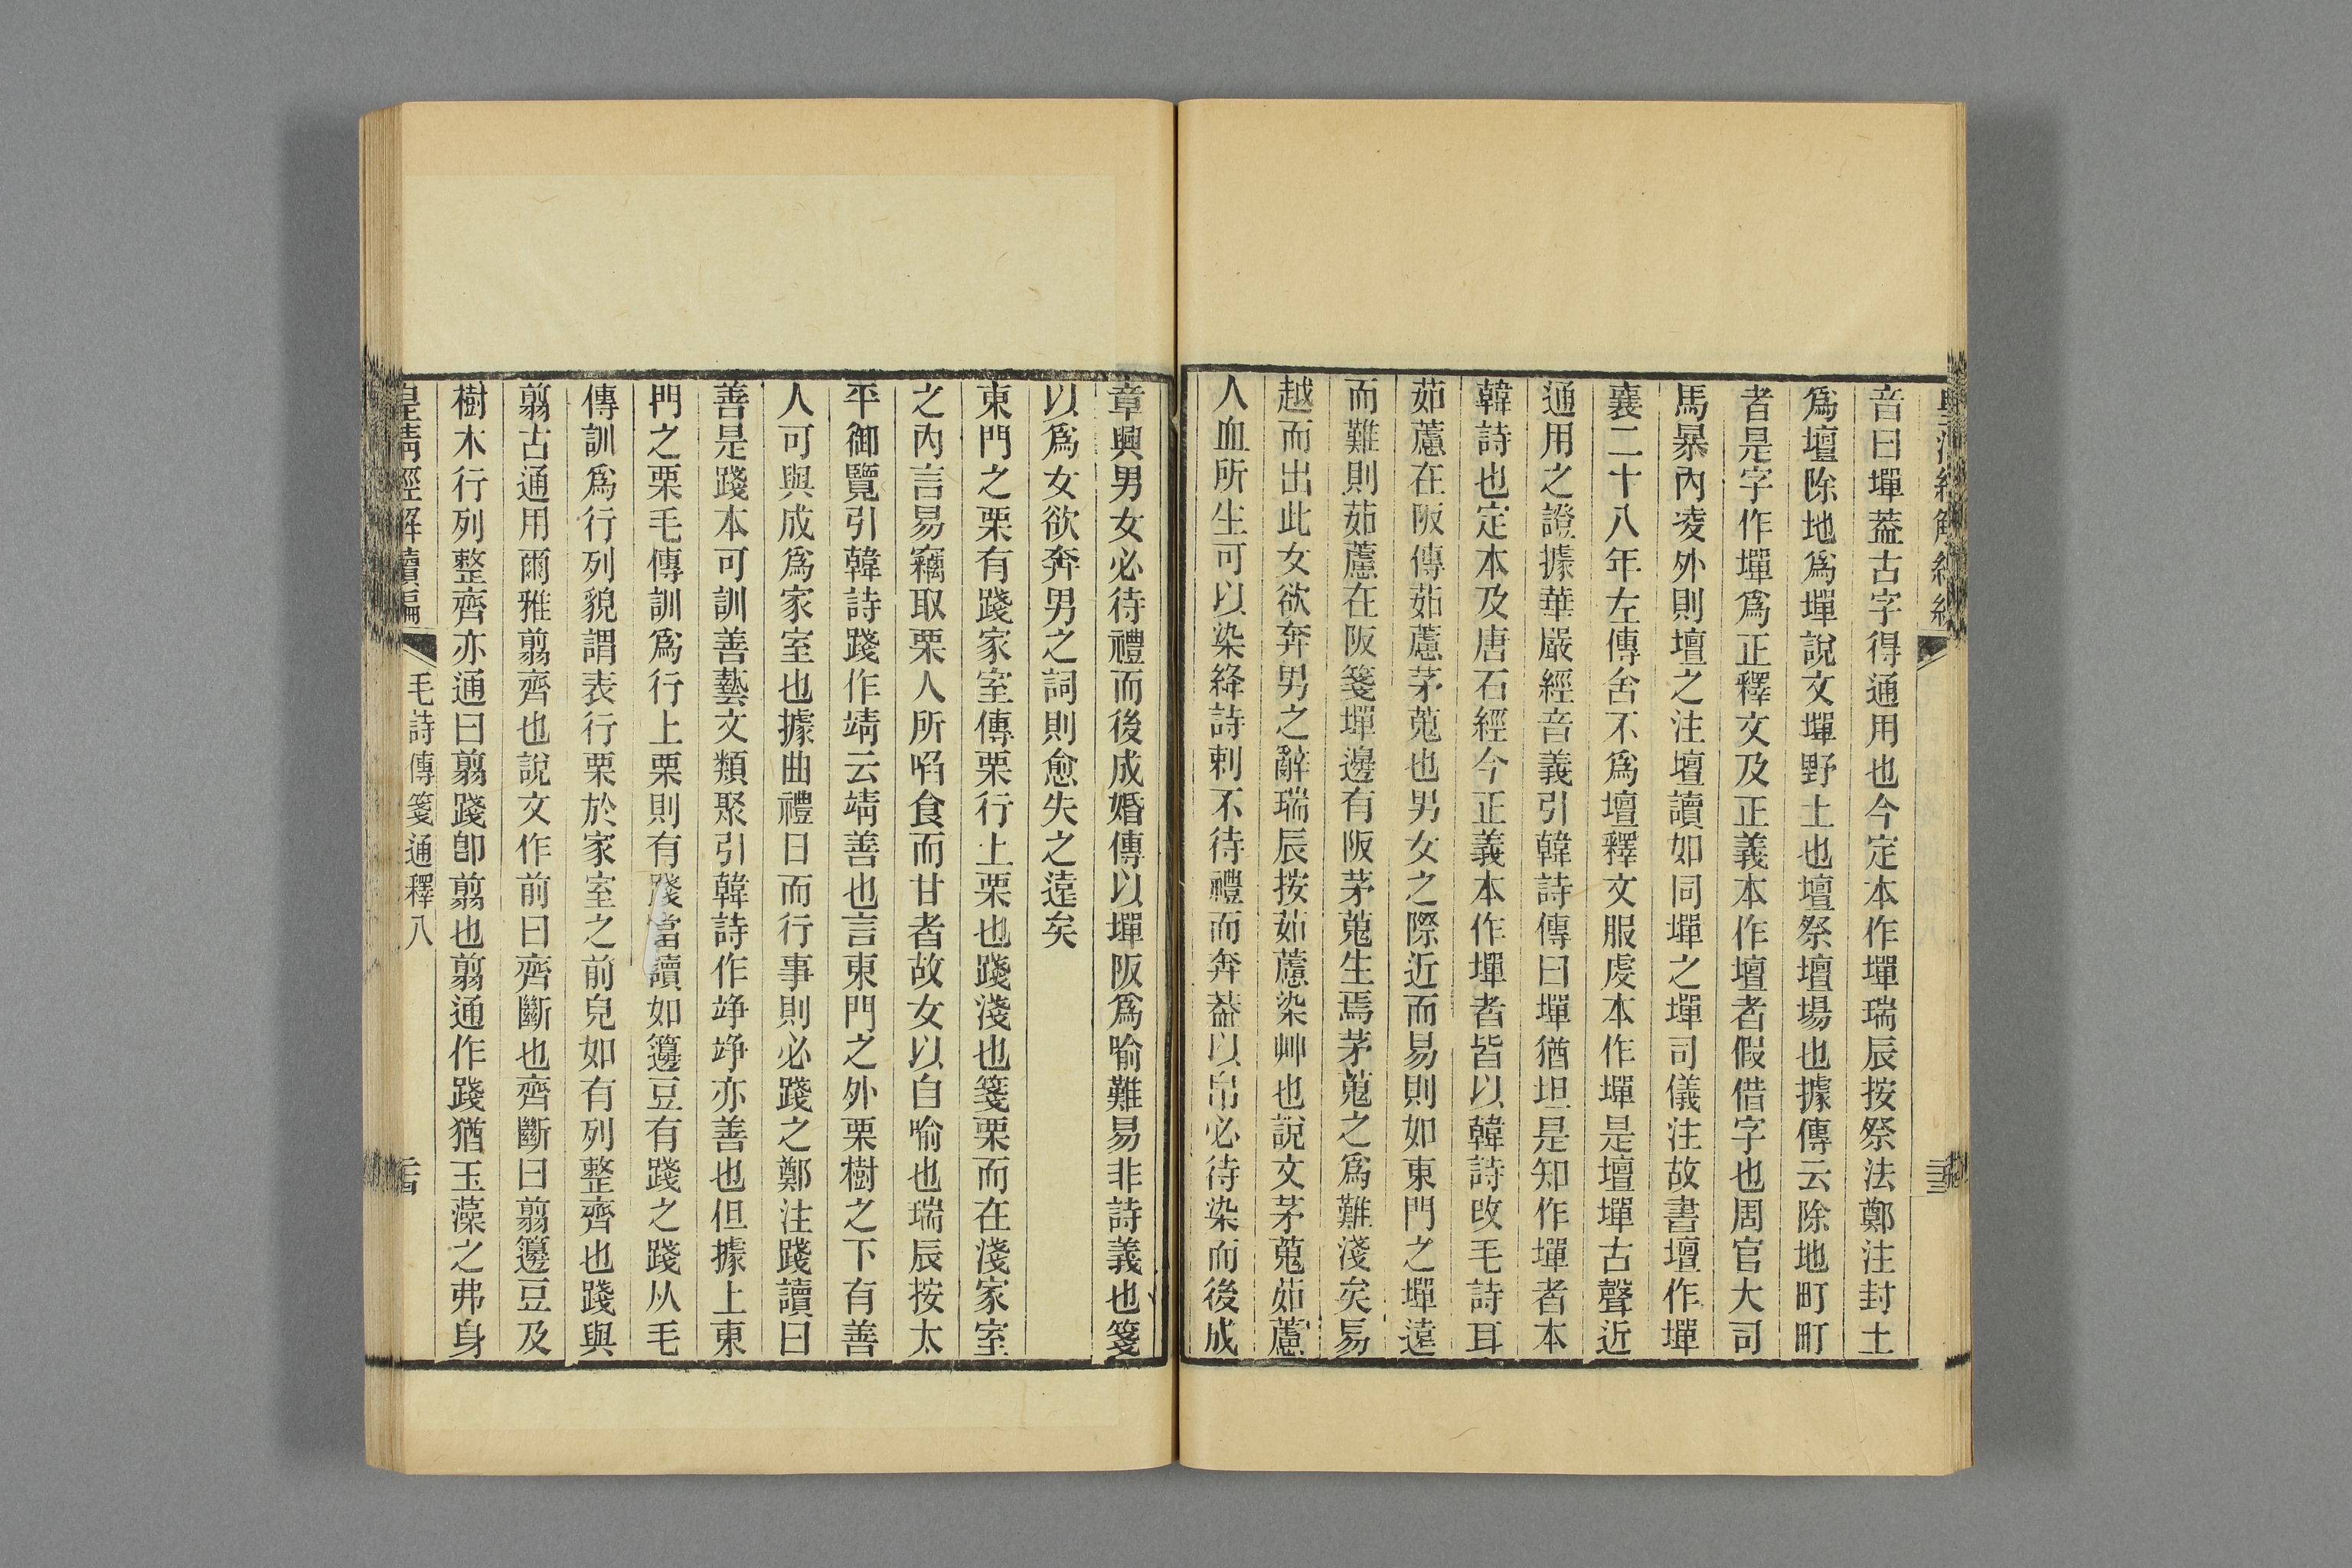 音曰墠葢古字得通用也今定本作墠瑞辰按祭法鄭注封土
爲壇除地爲墠說文墠野土也壇祭壇場也據傳云除地町町
者是字作墠爲正釋文及正義本作壇者假借字也周官大司
馬暴內凌外則壇之注壇讀如同墠之墠司儀注故書壇作墠
襄二十八年左傳舍不爲壇釋文服虔本作墠是壇墠古聲近
通用之證據華嚴經音義引韓詩傳曰墠猶坦是知作墠者本
韓詩也定本及唐石經今正義本作墠者皆以韓詩改毛詩耳
茹藘在阪傳茹藘茅蒐也男女之際近而易則如東門之墠遠
而難則茹藘在阪箋墠邊有阪茅蒐生焉茅蒐之爲難淺矣易
越而出此女欲奔男之辭瑞辰按茹藘染艸也說文茅蒐茹藘
人血所生可以染絳詩刺不待禮而奔葢以帛必待染而後成
章興男女必待禮而後成婚傳以墠阪爲喻難易非詩義也箋
以爲女欲奔男之詞則愈失之遠矣
東門之栗有踐家室傳栗行上栗也踐淺也箋栗而在淺家室
之內言易竊取栗人所啗食而甘耆故女以自喻也瑞辰按太
平御覽引韓詩踐作靖云靖善也言東門之外栗樹之下有善
人可與成爲家室也據曲禮日而行事則必踐之鄭注踐讀曰
善是踐本可訓善藝文類聚引韓詩作竫竫亦善也但據上東
門之栗毛傳訓爲行上栗則有踐當讀如籩豆有踐之踐从毛
傳訓爲行列貌謂表行栗於家室之前皃如有列整齊也踐與
翦古通用爾雅翦齊也說文作前曰齊斷也齊斷曰翦籩豆及
樹木行列整齊亦通曰翦踐卽翦也翦通作踐猶玉藻之弗身
皇清經解續編
毛詩傳箋通釋八